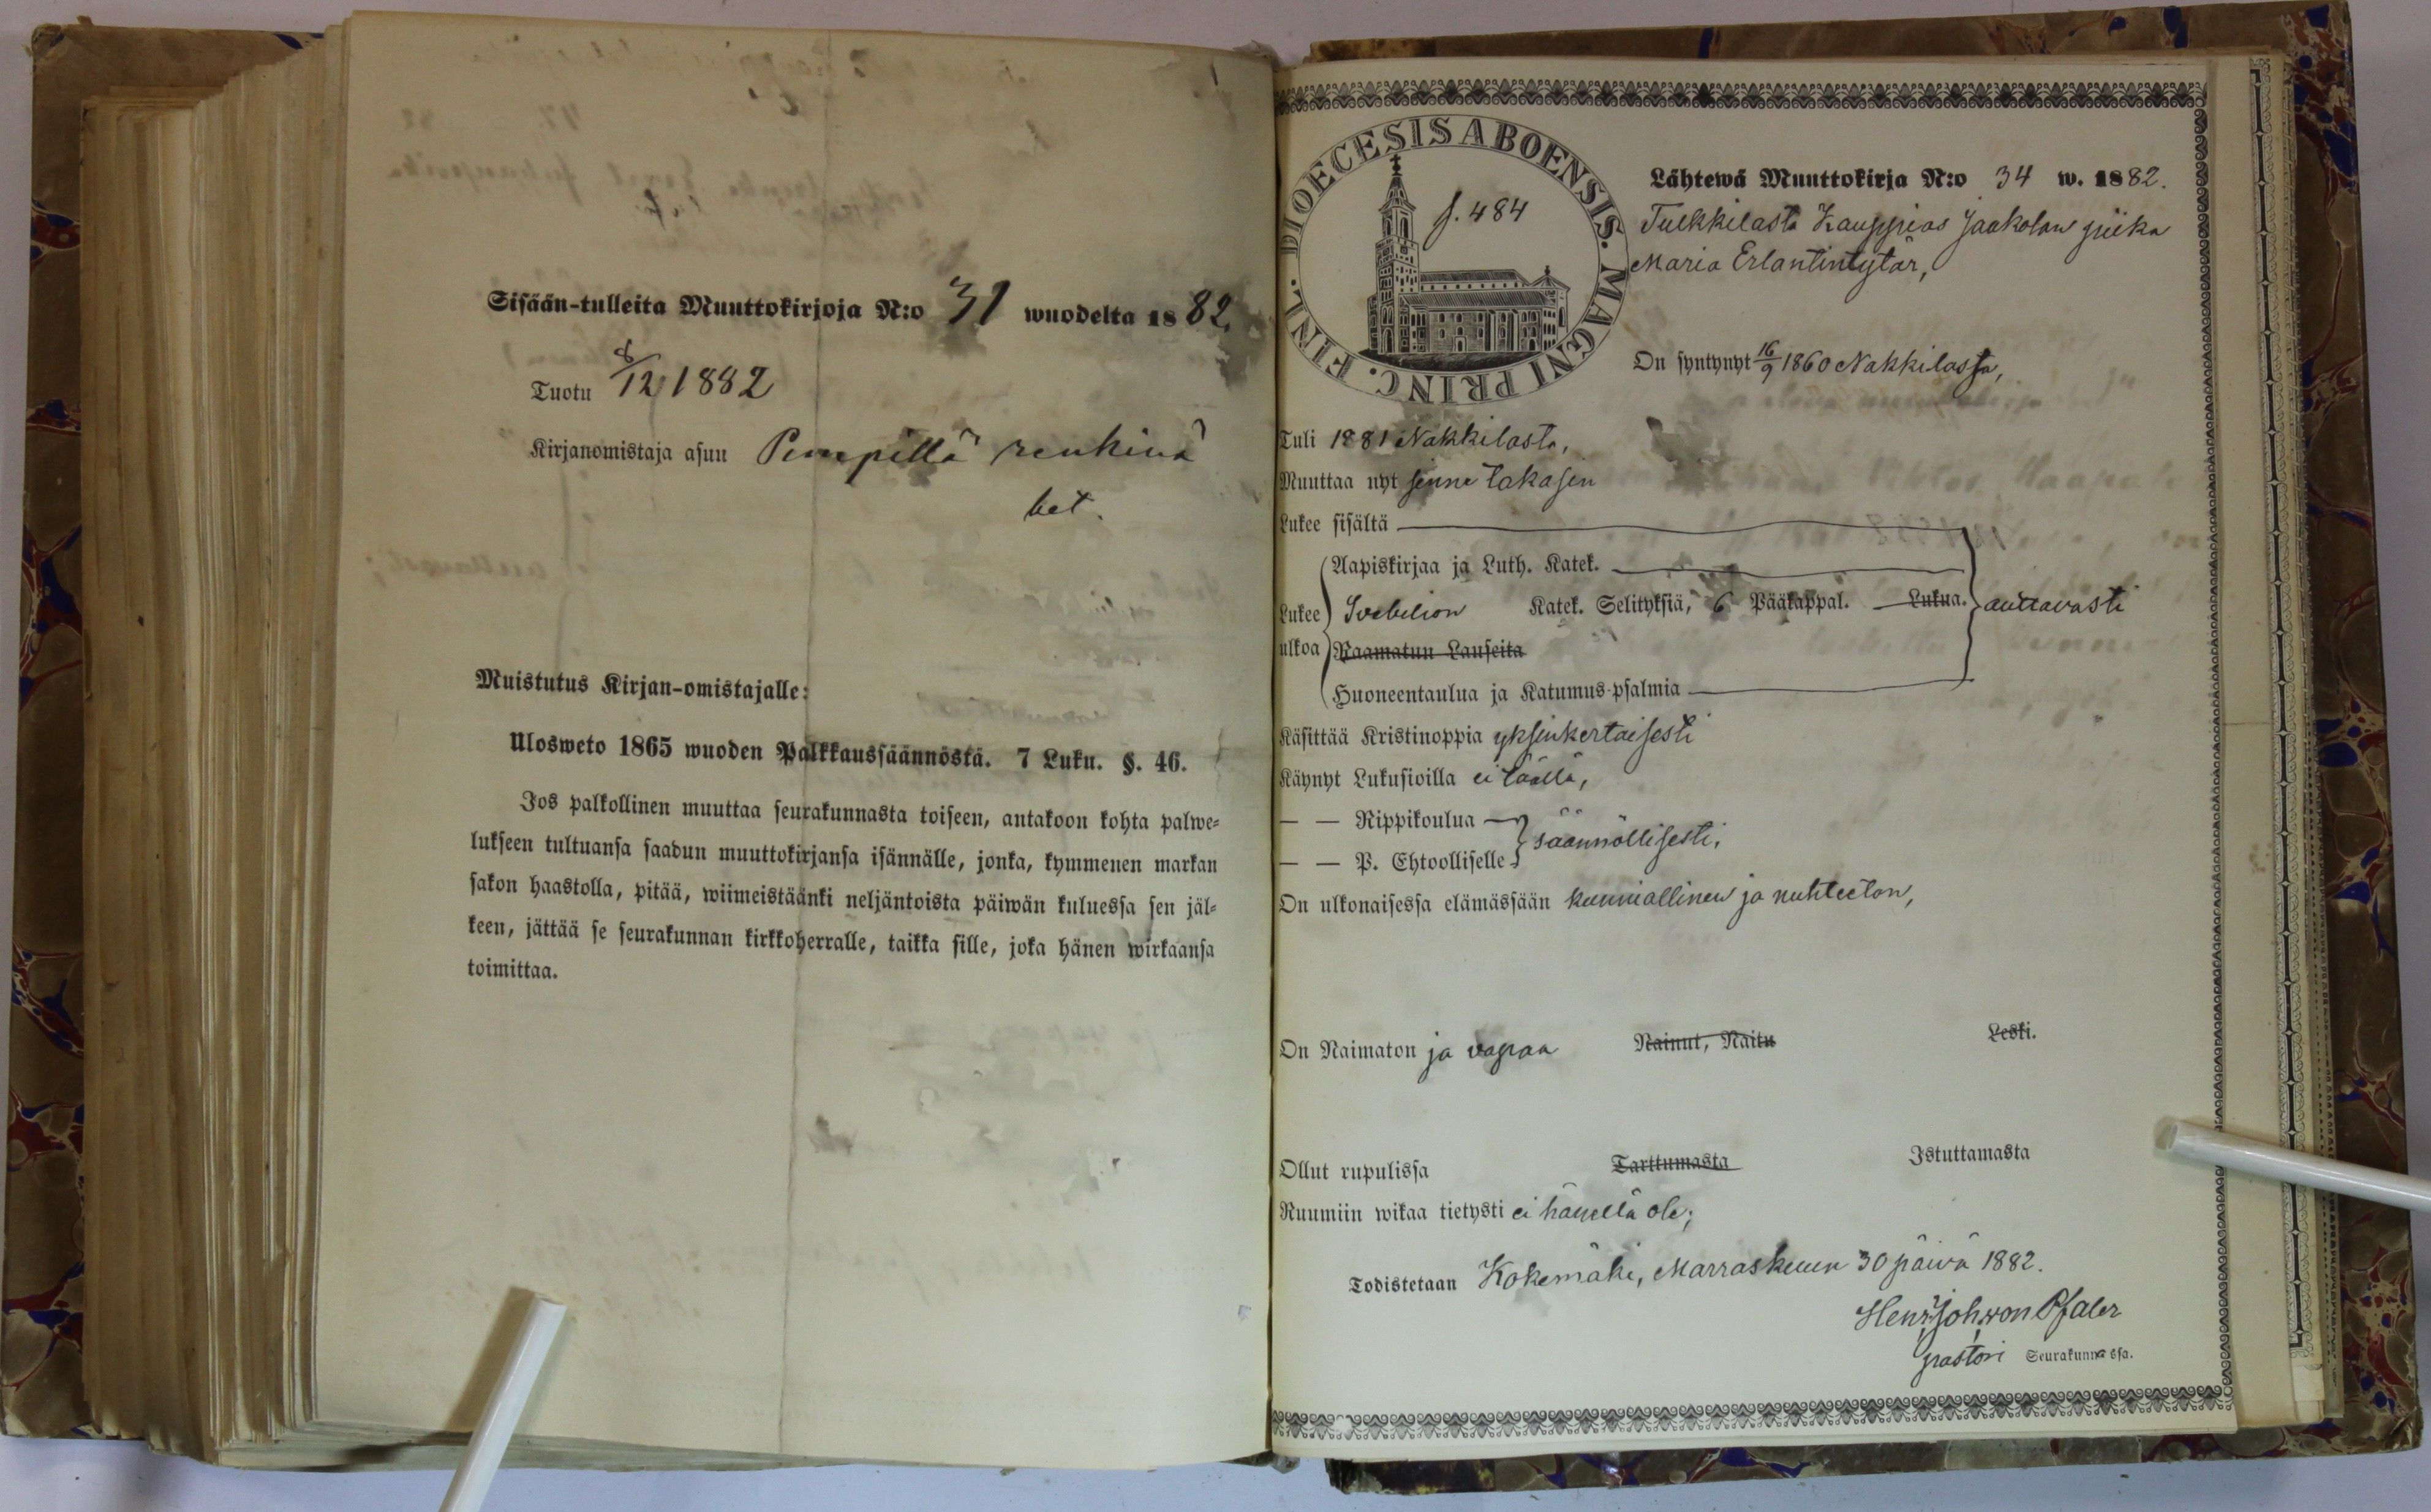 Sisään-tulleita Muuttokirjoja N:o 31 wuodelta 1882.
Tuotu 8/12 1882
Kirjanomistaja asuu Pumpillä renkinä
Muistutus Kirjan-omistajalle:
Ulosweto 1865 wuoden Palkkaussäännöstä. 7 Luku. §. 46.
Jos palkollinen muuttaa seurakunnasta toiseen, antakoon kohta palwe-
lukseen tultuansa saadun muuttokirjansa isännälle, jonka, kymmenen markan
sakon haastolla, pitää, wiimeistäänki neljäntoista päiwän kuluessa sen jäl-
keen, jättää se seurakunnan kirkkoherralle, taikka sille, joka hänen wirkaansa
toimittaa.
DIOECESIS ABOENSIS. MAGNI PRINC. FINL.
f. 484
Lähtewä Muuttokirja N:o 34 w. 1882.
Tulkkilasta Kauppias Jaakolan piika
Maria Erlantintytär,
On syntynyt 16/9 1860 Nakkilassa,
Tuli 1881 Nakkilasta,
Muuttaa nyt sinne takasin
Lukee sisältä
Aapiskirjaa ja Luth. Katek.
Lukee ulkoa Svebelion Katek. Selityksiä, 6 Pääkappal. Lukua. auttavasti
Raamatun Lauseita
Huoneentaulua ja Katumus-psalmia
Käsittää Kristinoppia yksinkertaisesti
Käynyt Lukusioilla ei täällä,
— — Rippikoulua
— — P. Ehtoolliselle säännöllisesti,
On ulkonaisessa elämässään kunniallinen ja nuhteeton,
On Naimaton ja vapaa Nainut, Naitu Leski.
Ollut rupulissa Tarttumasta Istuttamasta
Ruumiin wikaa tietysti ei hänellä ole;
Todistetaan Kokemäki, Marraskuun 30 päivä 1882.
Henr. Joh. von Pfaler
pastori Seurakunnassa.